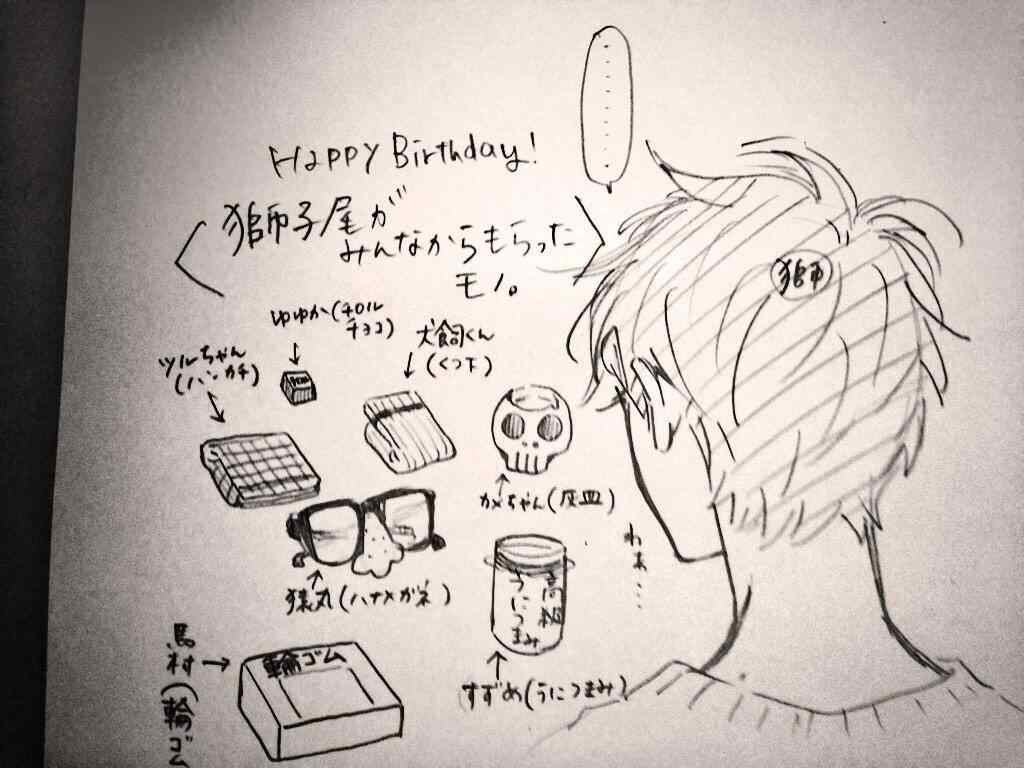 Happy Birthday!
獅子尾が
みんなからもらった
モノ。
獅
ゆゆか(チロル
チョコ)
犬飼くん
(くつ下)
ツルちゃん
(ハンカチ)
カメちゃん(灰皿)
猿丸(ハナメガネ)
わぁ…
高級
うにつまみ
すずめ(うにつまみ)
馬村(輪ゴム
輪ゴム